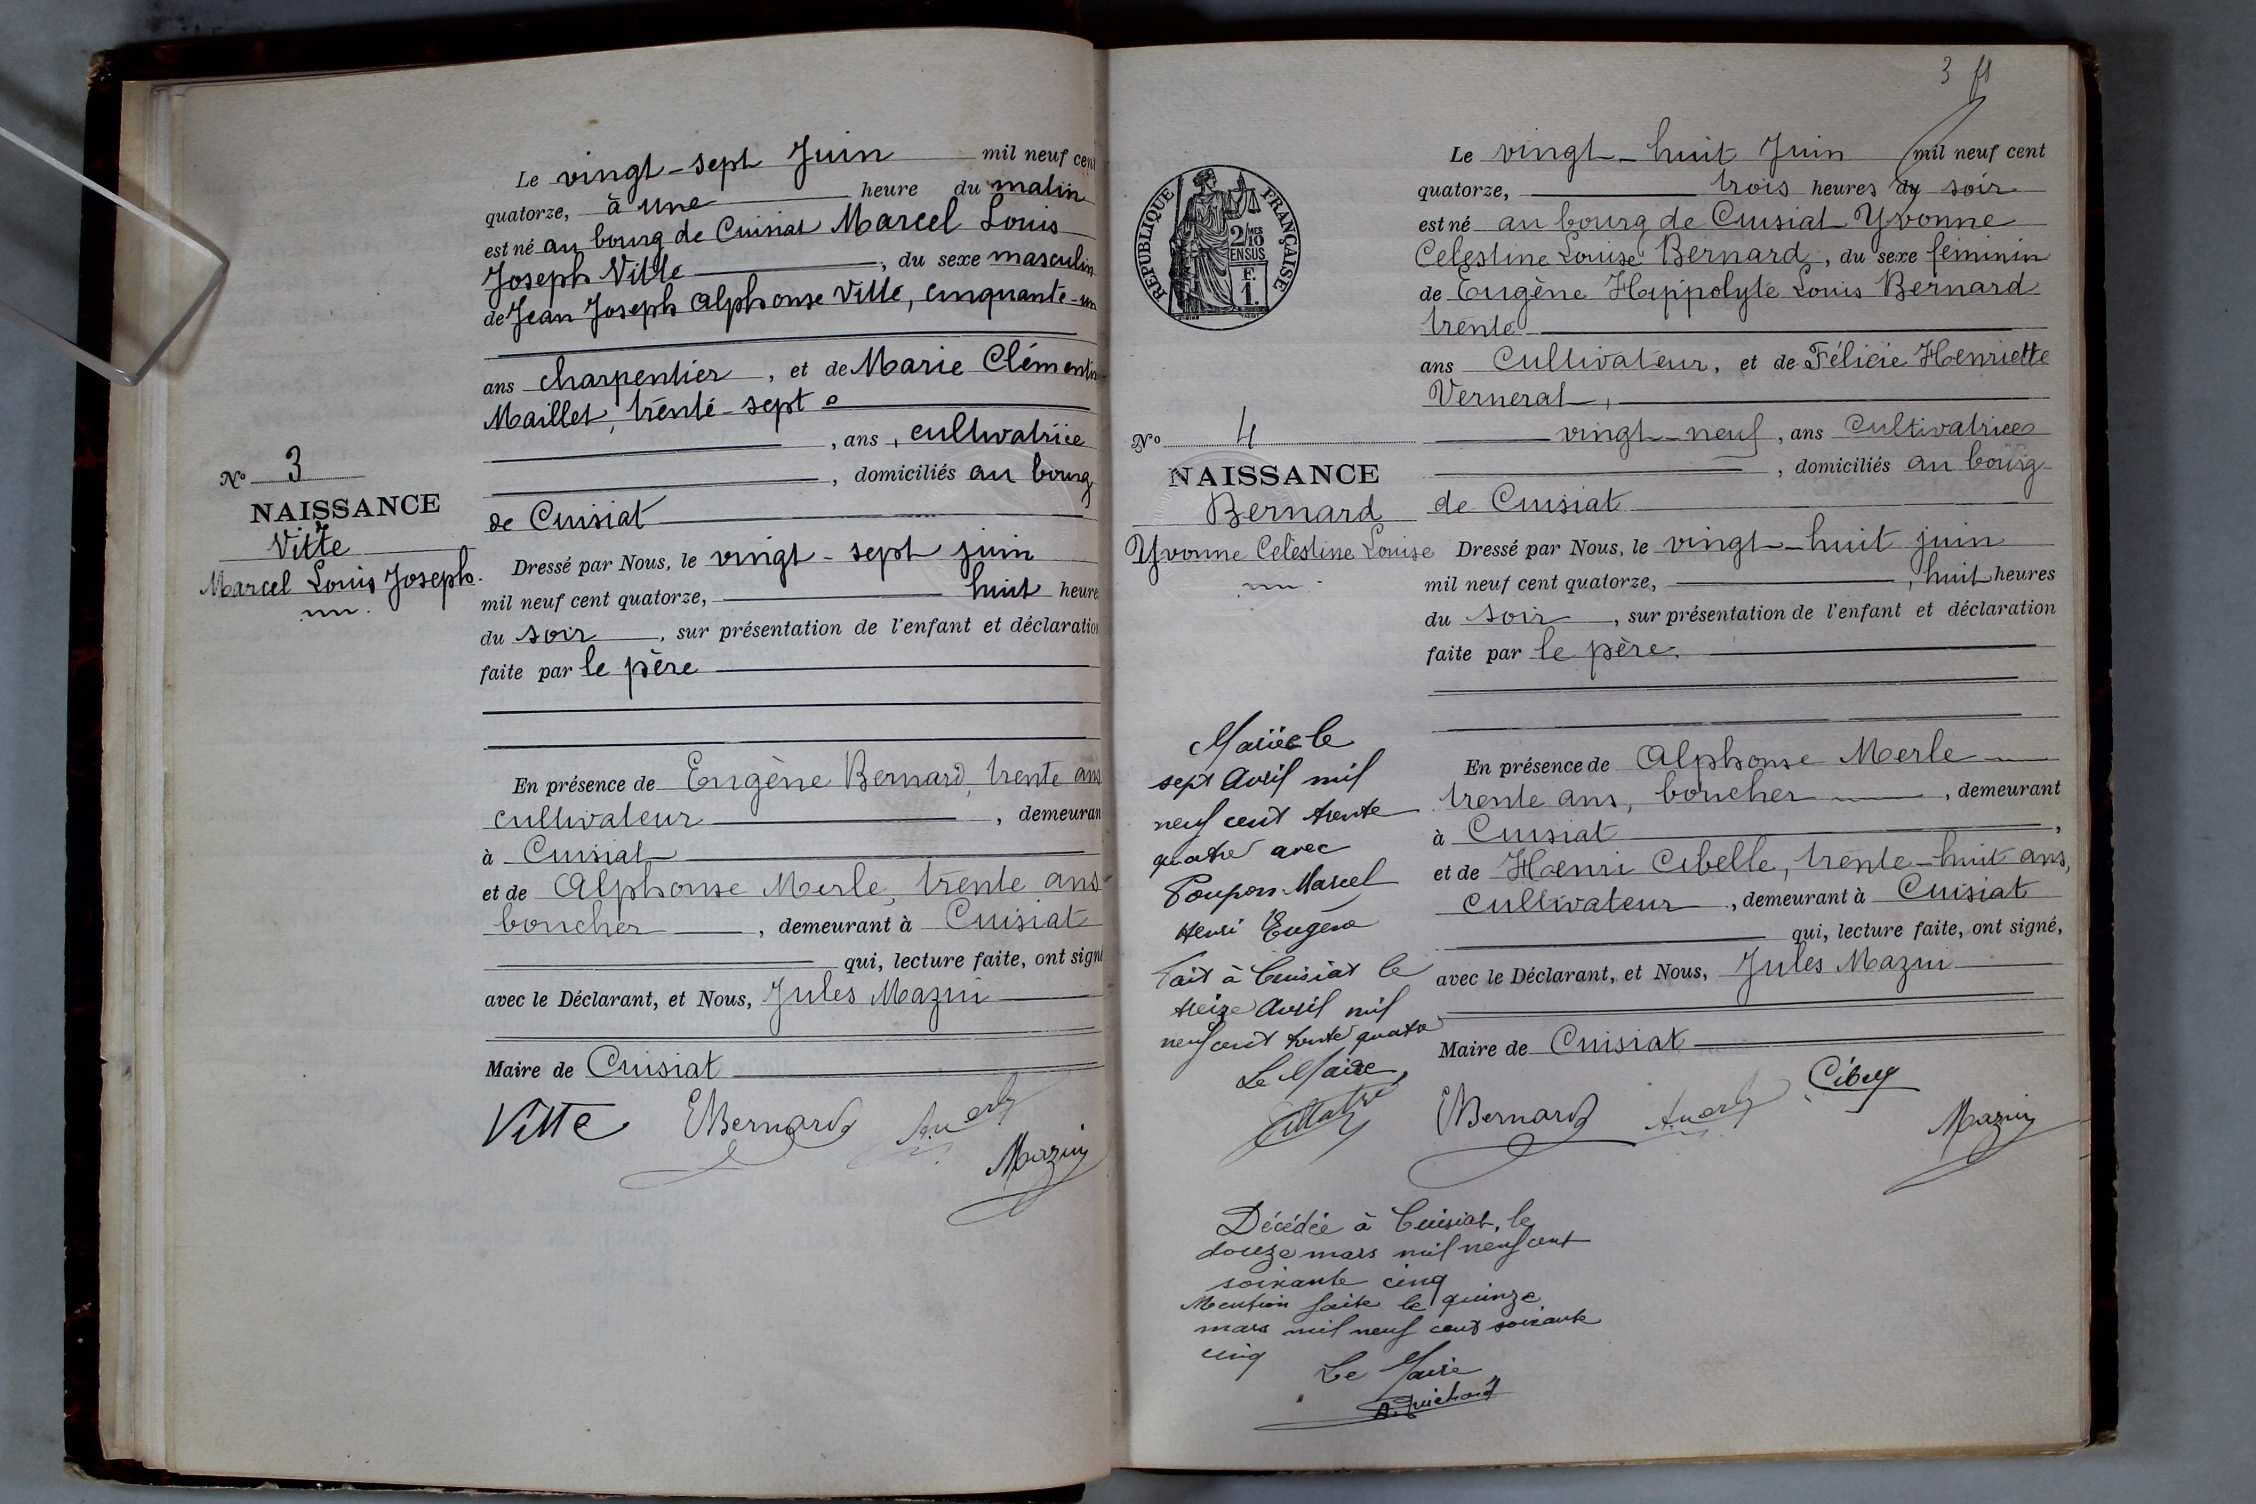 Le vingt-sept Juin mil neuf cent
quatorze, à une heure du matin
est né au bourg de Cuisiat Marcel Louis
Joseph Vitte, du sexe masculin
de Jean Joseph Alphonse Vitte, cinquante-un
ans charpentier, et de Marie Clémentin
Maillet, trente-sept
, ans, cultivatrice
, domiciliés au bourg
de Cuisiat
N° 3
NAISSANCE
Vitte
Marcel Louis Joseph.
Dressé par Nous, le vingt-sept juin
mil neuf cent quatorze, huit heure
du soir, sur présentation de l'enfant et déclaration
faite par le père
En présence de Eugène Bernard, trente ans
cultivateur, demeuran
à Cuisiat
et de Alphonse Merle, trente ans
boucher, demeurant à Cuisiat
qui, lecture faite, ont signé
avec le Déclarant, et Nous, Jules Mazui
Maire de Cuisiat
Vitte EBernard A. Merle Mazuy
3
RÉPUBLIQUE FRANÇAISE
2/10 MES
EN SUS
F.
1.
Le vingt-huit Juin mil neuf cent
quatorze, trois heures du soir
est né au bourg de Cuisiat Yvonne
Celestine Louise Bernard, du sexe feminin
de Eugène Hippolyte Louis Bernard
trente
ans Cultivateur, et de Félicie Henriette
Vernerat,
vingt-neuf, ans Cultivatrice
, domiciliés au bourg
de Cuisiat
N° 4
NAISSANCE
Bernard
Yvonne Celestine Louise
Dressé par Nous, le vingt-huit juin
mil neuf cent quatorze, huit heures
du soir, sur présentation de l'enfant et déclaration
faite par le père.
En présence de Alphonse Merle
trente ans, boucher, demeurant
à Cuisiat,
et de Henri Cibelle, trente-huit ans,
cultivateur, demeurant à Cuisiat
qui, lecture faite, ont signé,
avec le Déclarant, et Nous, Jules Mazui
Maire de Cuisiat
EBernard A. Merle Mazuy
Mariée le
sept Avril mil
neuf cent trente
quatre avec
Poupon Marcel
Henri Eugène
Fait à Cuisiat le
treize Avril mil
neuf cent trente quatre
Le Maire,
Décédée à Cuisiat, le
douze mars mil neuf cent
soixante cinq
Mention faite le quinze
mars mil neuf cent soixante
cinq
Le Maire
A. Guichard